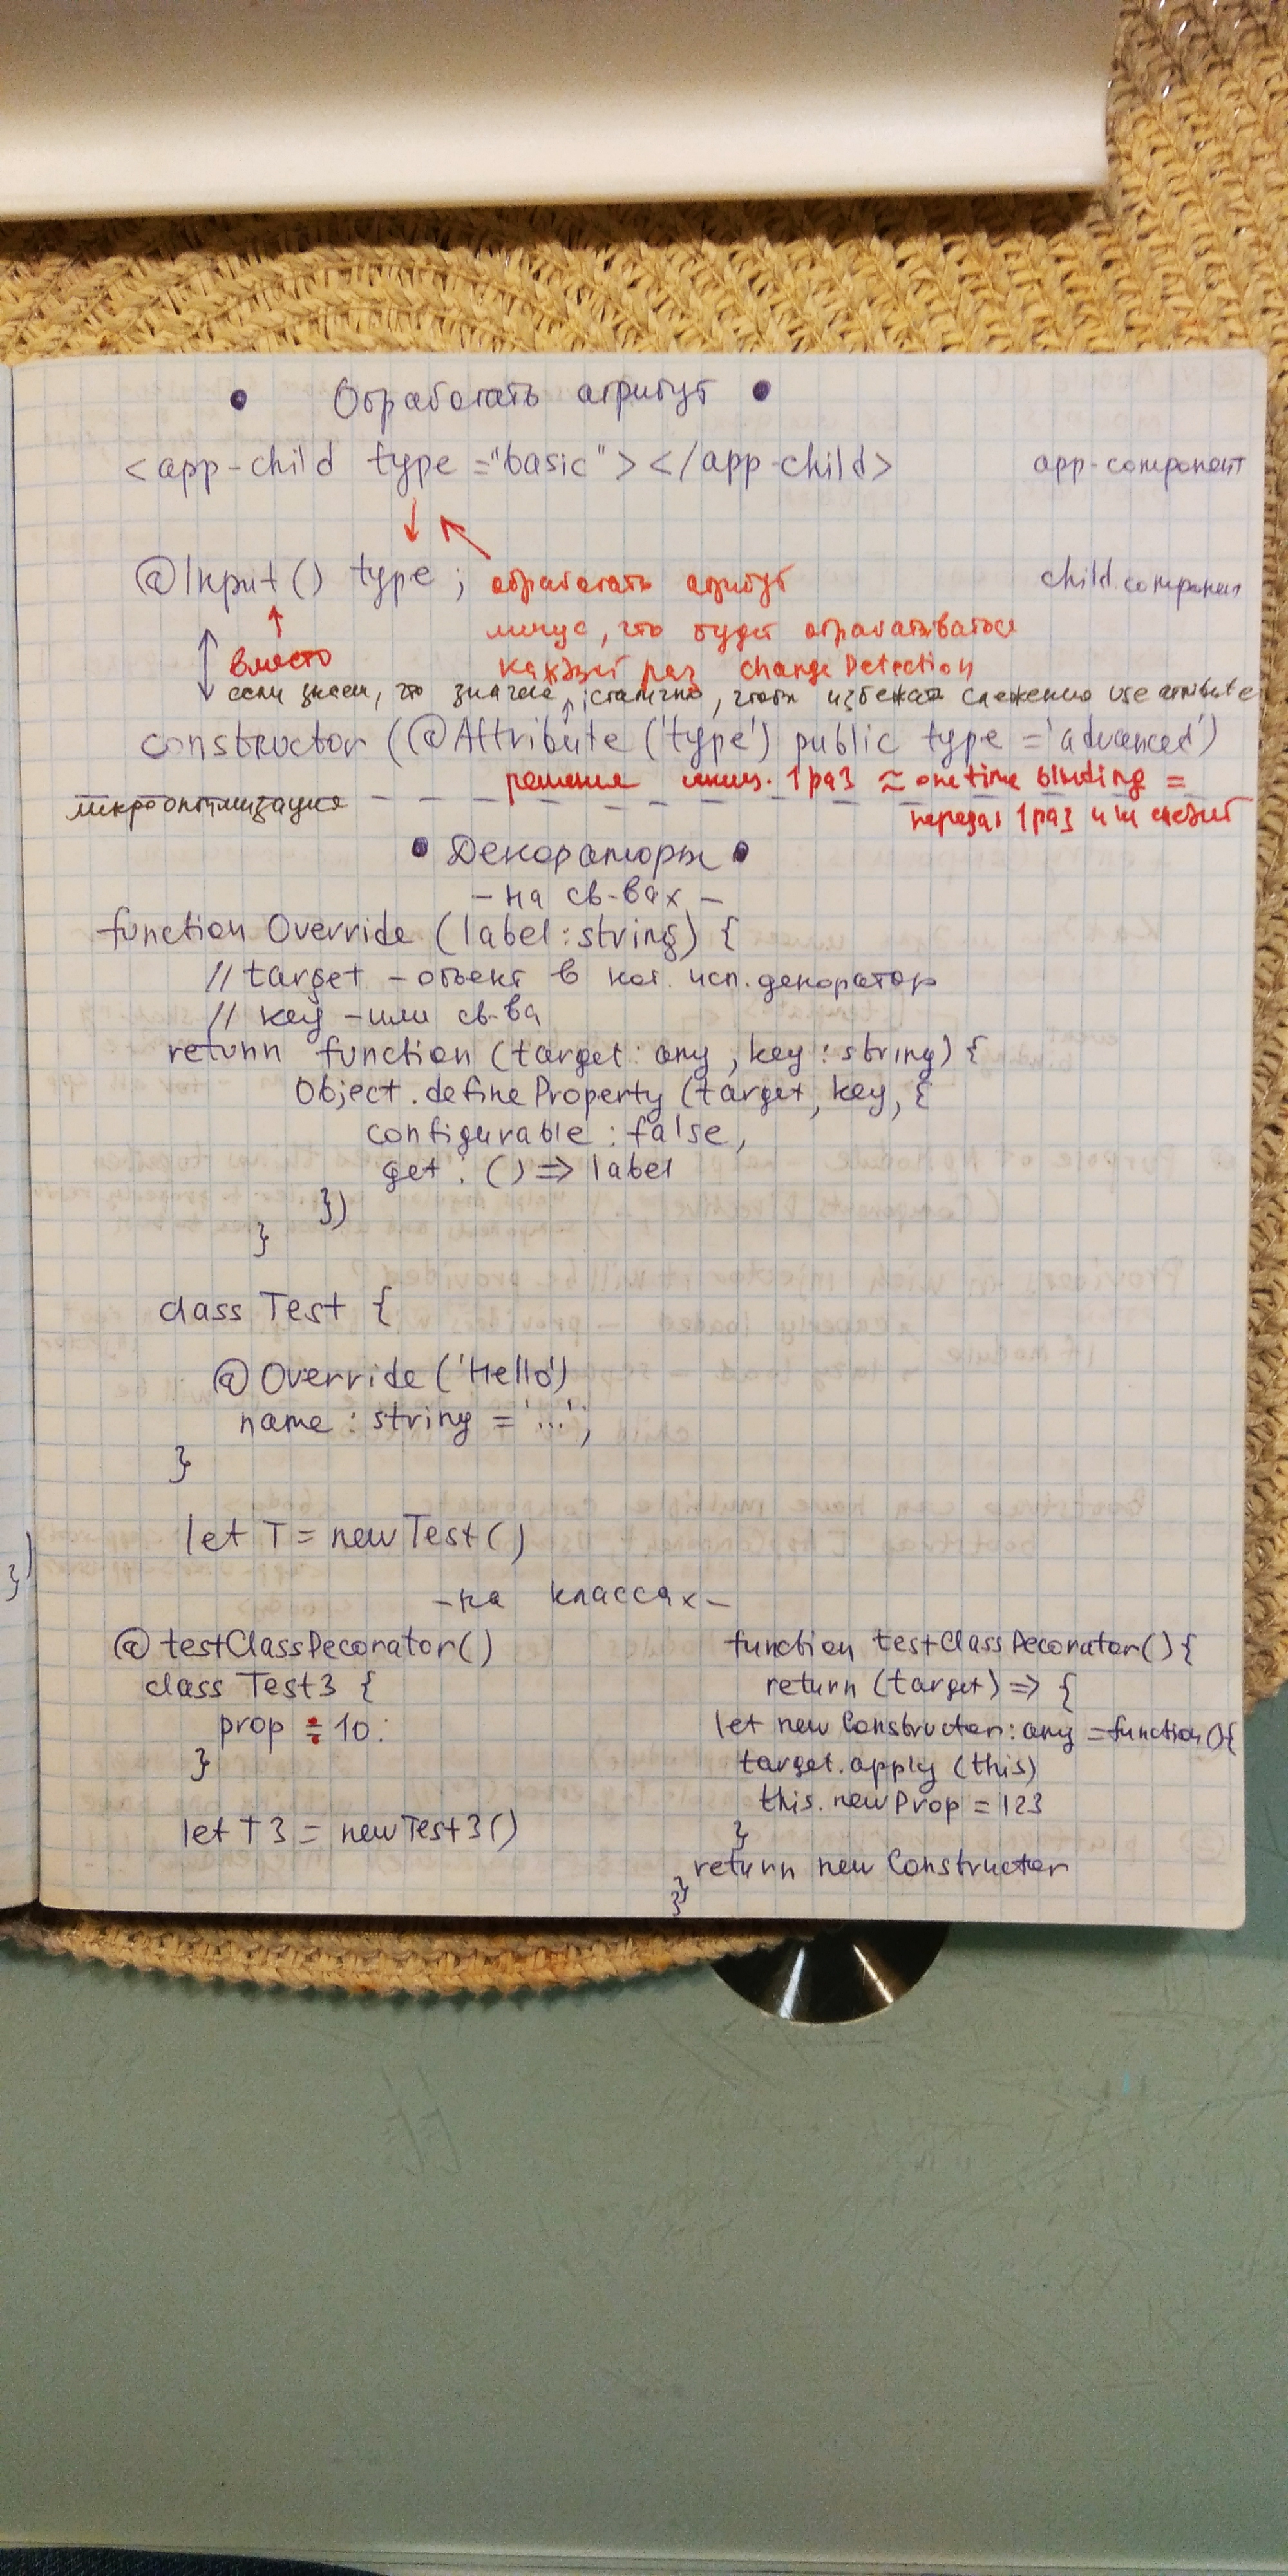 • Обработать атрибут •
<app-child type="basic"></app-child> app-component
@Input() type; обработать атрибут child.component
минус, что будет обрабатываться
вместо каждый раз changeDetection
если знаем, что значение статично, чтобы избежать слежению use attribute
constructor (@Attribute ('type') public type = 'advanced')
решение иниц. 1 раз ≈ one time binding =
микрооптимизация передал 1 раз и не следит
• Декораторы •
- на св-вах -
function Override (label: string) {
// target - объект в кот. исп. декоратор
// key - имя св-ва
return function (target: any, key: string) {
Object.defineProperty (target, key, {
configurable: false,
get: () => label
})
}
class Test {
@Override ('Hello')
name: string = '...';
}
let T = new Test()
- на классах -
@testClassDecorator()
class Test3 {
prop = 10;
}
let T3 = new Test3()
function testClassDecorator() {
return (target) => {
let newConstructor: any = function() {
target.apply (this)
this.newProp = 123
}
return newConstructor
}
}
})